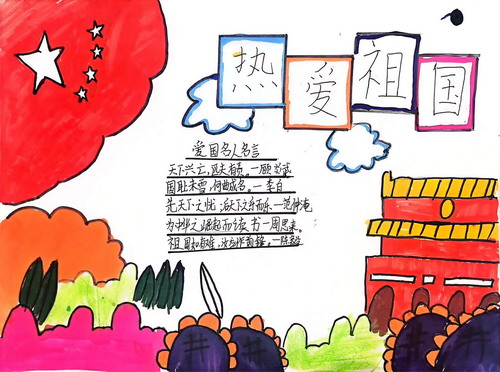 热爱祖国
爱国名人名言
天下兴亡,匹夫有责。一顾炎武
国耻未雪,何由成名。一李白
先天下之忧,后天下之乐而乐一范仲淹
为中华之崛起而读书一周恩来。
祖国如有难,汝应作前锋。一陈毅